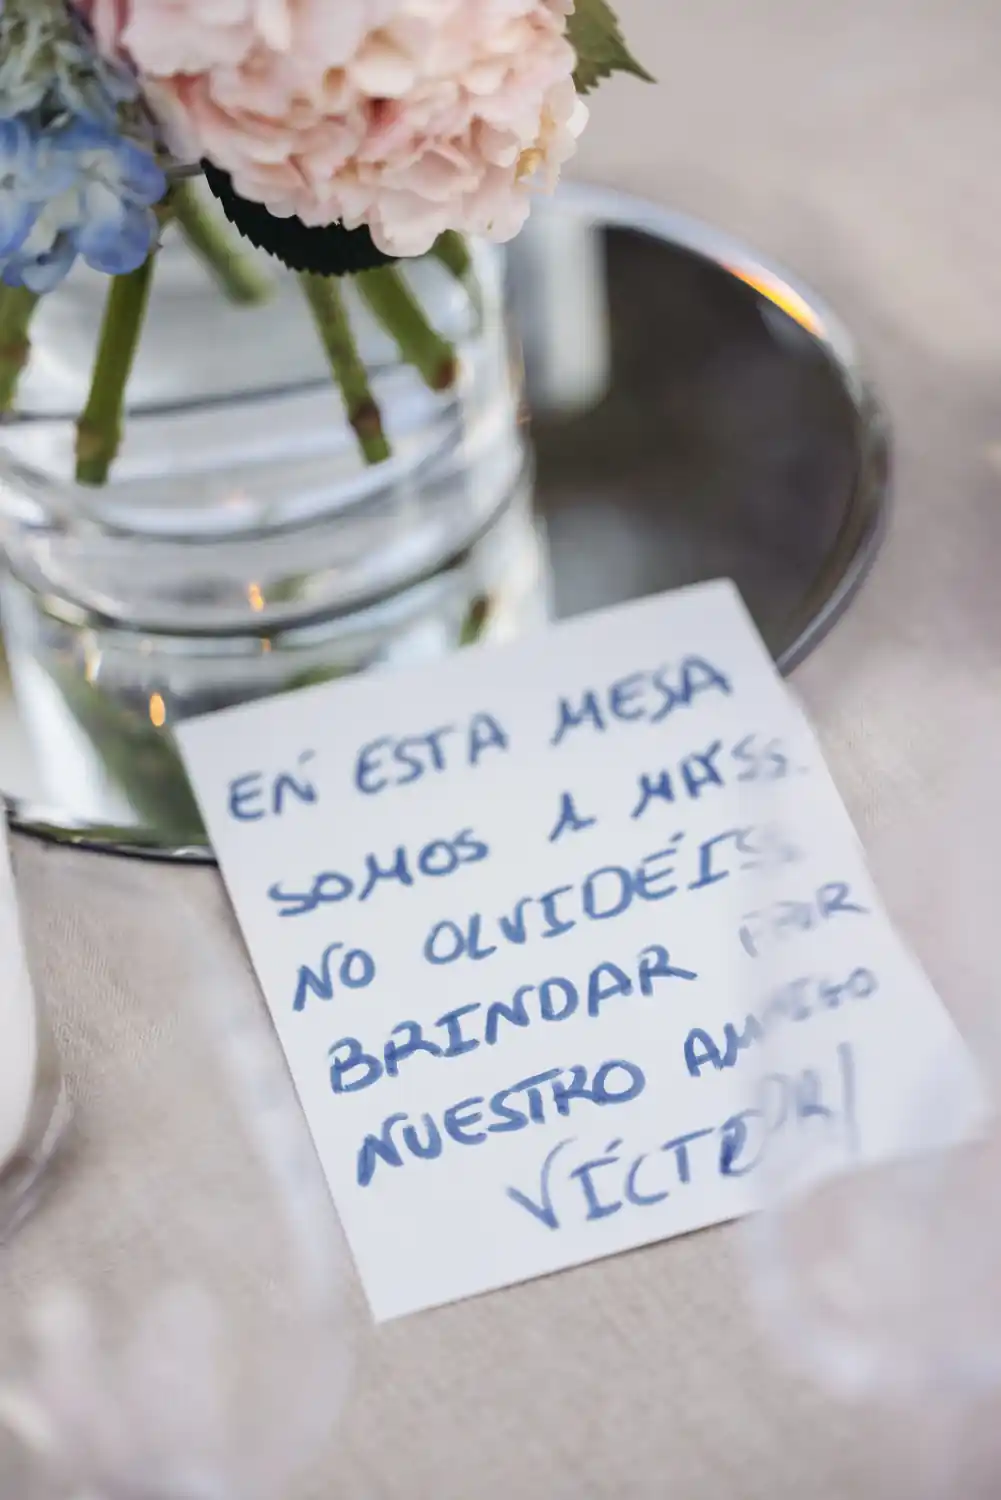 EN ESTA MESA
SOMOS 1 MÁSS.
NO OLVIDÉIS
BRINDAR POR
NUESTRO AMIGO
VÍCTOR!